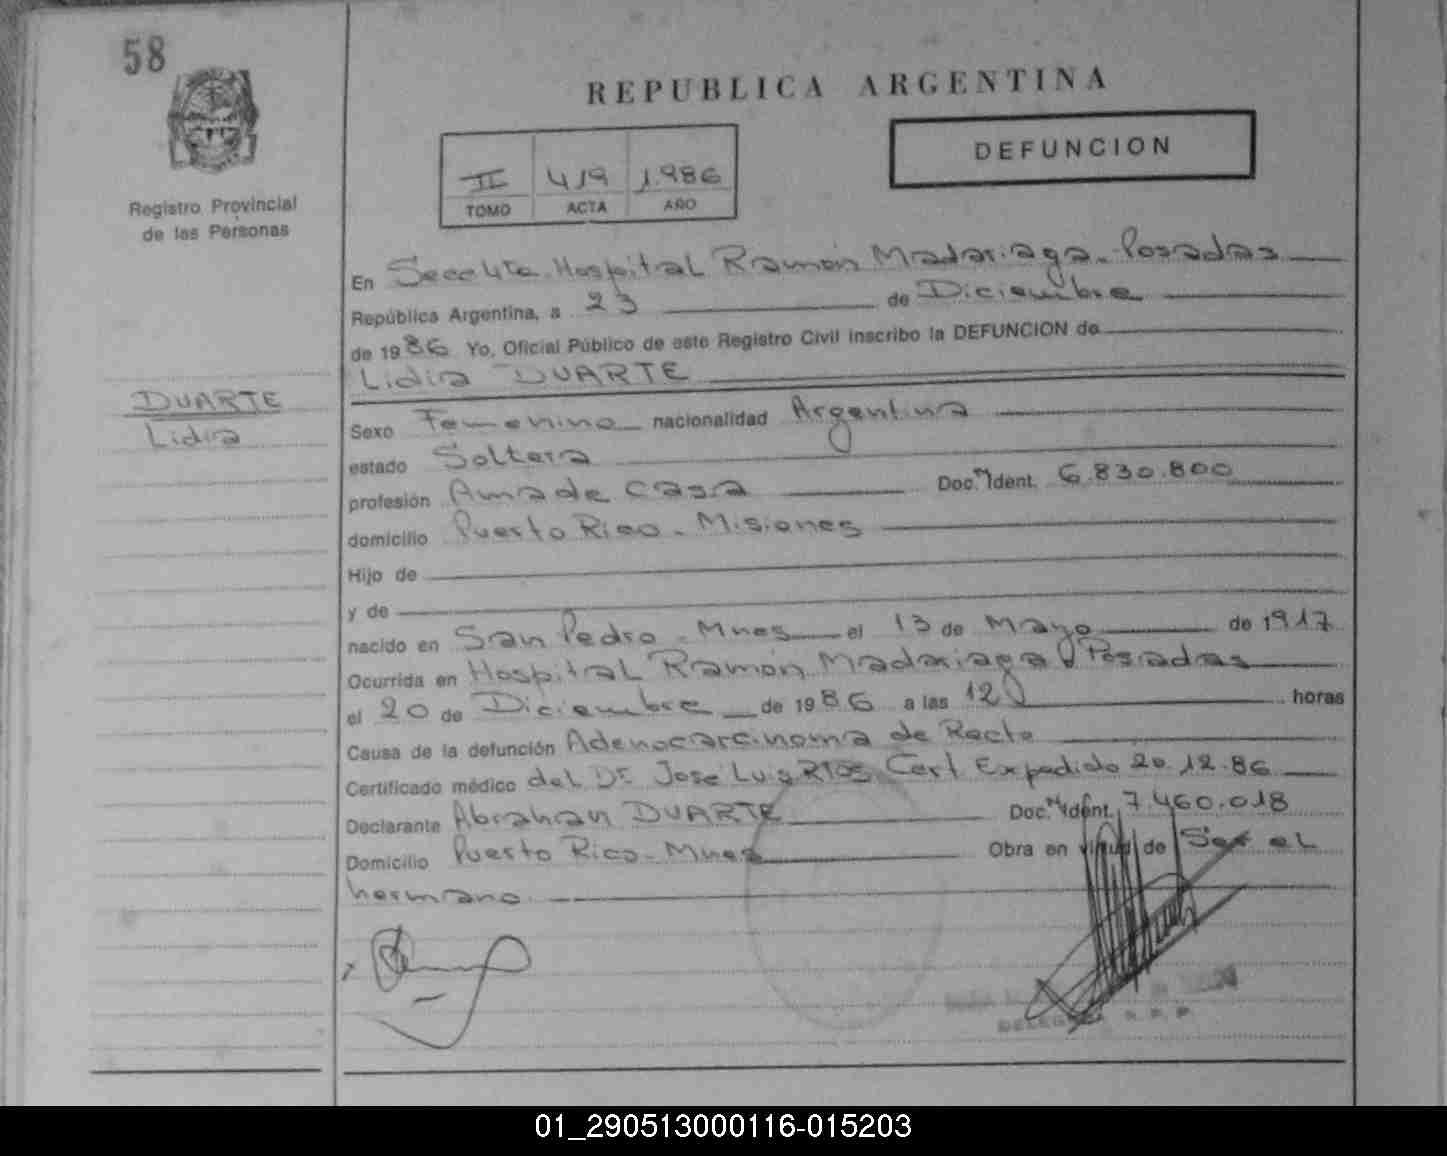 58
REPUBLICA ARGENTINA
DEFUNCION
II 419 1.986
TOMO ACTA AÑO
Registro Provincial
de las Personas
En Secc 4ta Hospital Ramón Madariaga - Posadas
República Argentina, a 23 de Diciembre
de 1986 Yo, Oficial Público de este Registro Civil inscribo la DEFUNCION de
Lidia DUARTE
DUARTE
Lidia
Sexo Femenino nacionalidad Argentina
estado Soltera
profesión Ama de Casa Doc. N Ident. 6.830.800
domicilio Puerto Rico - Misiones
Hijo de
y de
nacido en San Pedro - Mnes el 13 de Mayo de 1917
Ocurrida en Hospital Ramón Madariaga Posadas
el 20 de Diciembre de 1986 a las 12 horas
Causa de la defunción Adenocarcinoma de Recto
Certificado médico del Dr José Luis RIOS Cert Expedido 20.12.86
Declarante Abrahan DUARTE Doc. N Ident. 7.460.018
Domicilio Puerto Rico - Mnes Obra en virtud de Ser el
hermano
R. P. P.
01_290513000116-015203